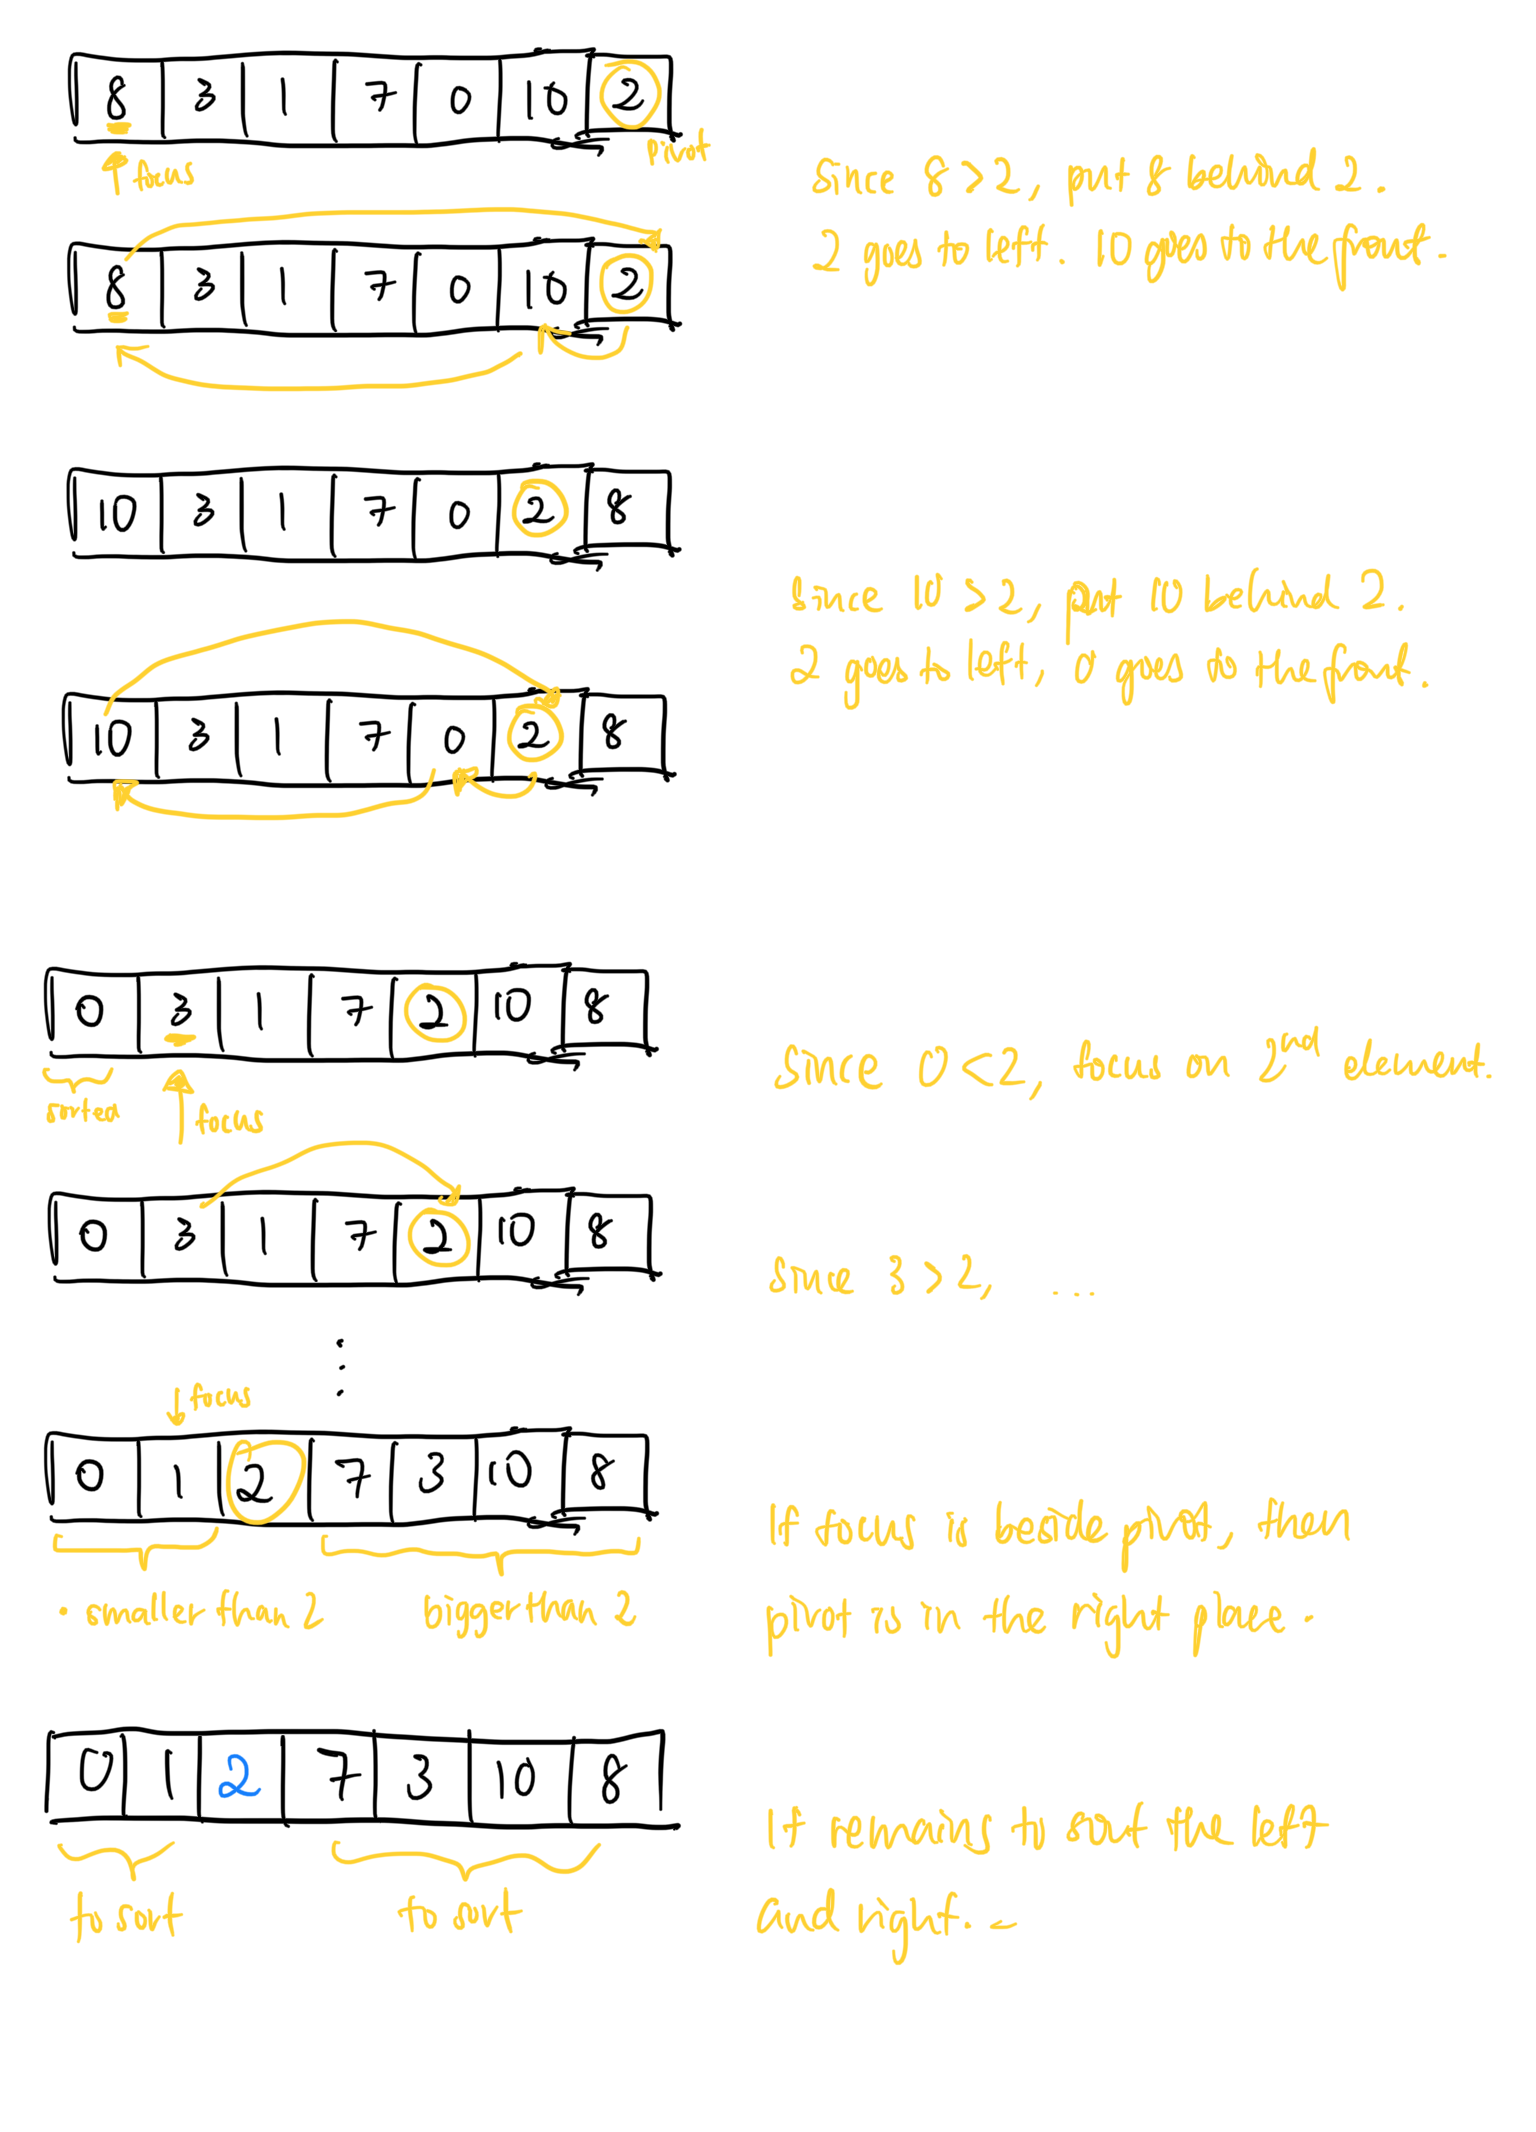 8 3 1 7 0 10 2
focus
pivot
since 8 > 2, put 8 behind 2.
2 goes to left. 10 goes to the front.
8 3 1 7 0 10 2
10 3 1 7 0 2 8
since 10 > 2, put 10 behind 2.
2 goes to left, 0 goes to the front.
10 3 1 7 0 2 8
0 3 1 7 2 10 8
sorted
focus
Since 0 < 2, focus on 2nd element.
0 3 1 7 2 10 8
since 3 > 2, ...
focus
0 1 2 7 3 10 8
smaller than 2
bigger than 2
If focus is beside pivot, then
pivot is in the right place.
0 1 2 7 3 10 8
to sort
to sort
It remains to sort the left
and right.